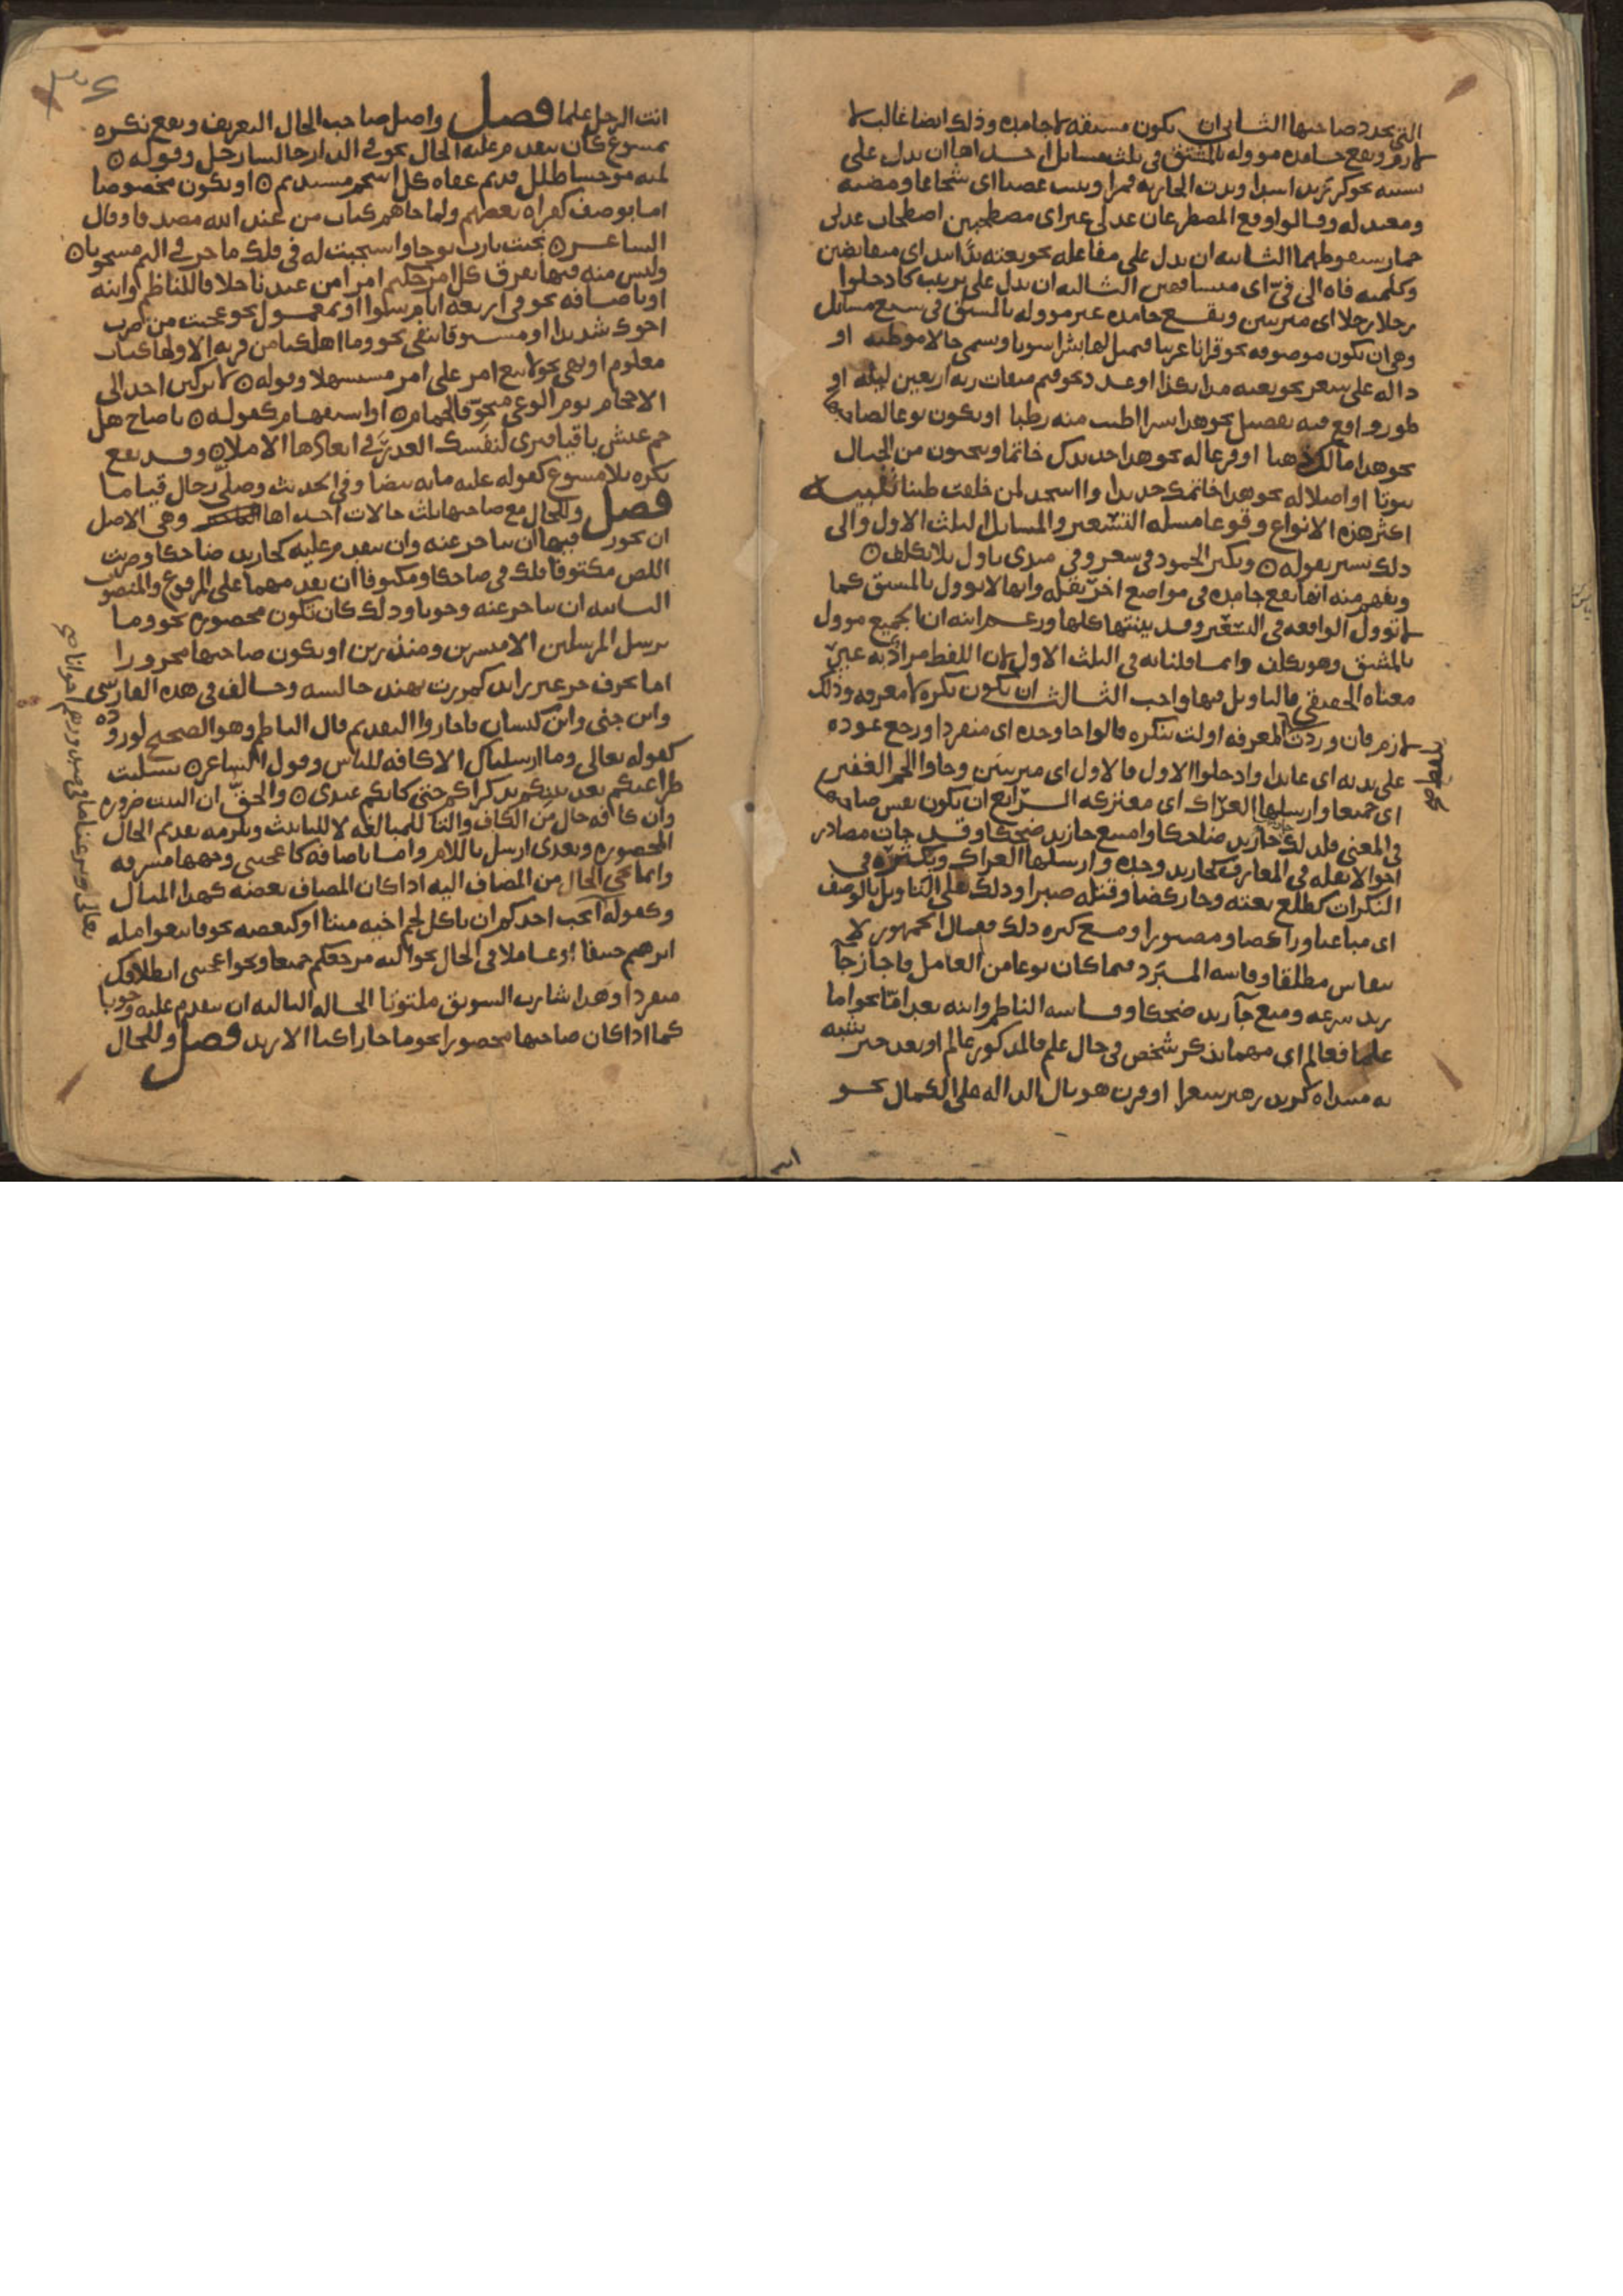 التي تجدد صاحبها الثاني ان تكون مشتقه لا جامده وذلك ايضا غالب لا
لازم وتقع جامده مووله بالمشتق في ثلث مسايل احداها ان تدل على
تشبيه نحو كر زيد اسدا وبدت الجاريه قمرا وتثنت غصنا اى شجاعا ومضيه
ومعتدله وقالوا وقع المصطرعان عدلى عير اى مصطحبين اصطحاب عدلى
حمار سقوطهما الثانيه ان تدل على مفاعله نحو بعته يدا بيد اى متقابضين
وكلمته فاه الى فيّ اى متشافهين الثالثه ان تدل على ترتيب كادخلوا
رجلا رجلا اى مترتبين وتقع جامده غير مووله بالمشتق في سبع مسايل
وهى ان تكون موصوفه نحو قرانا عربيا فتمثل لها بشرا سويا وتسمى حالا موطيه او
داله على سعر نحو بعته مدا بكذا او عدد نحو فتم ميقات ربه اربعين ليله او
طور واقع فيه تفضيل نحو هذا بسرا اطيب منه رطبا او تكون نوعا لصاحبها
نحو هذا مالك ذهبا او فرعا له نحو هذا حديدك خاتما وتنحتون من الجبال
بيوتا او اصلا له نحو هذا خاتمك حديدا واسجد لمن خلقت طينا تنبيه
اكثر هذه الانواع وقوعا مسله التسعير والمسايل الثلث الاول والى
ذلك يشير بقوله ه ويكثر الجمود في سعر وفي مبدى تاول بلا تكلف ه
ويفهم منه انها تقع جامده في مواضع اخر بقله وانها لا توول بالمشتق كما
لا توول الواقعه في التسعير وقد بينتها كلها وزعم ابنه ان الجميع موول
بالمشتق وهو تكلف وانما قلنا به في الثلث الاول لان اللفظ مراد به غير
معناه الحقيقي فالتاويل فيها واجب الثالث ان تكون نكره لا معرفه وذلك
لازم فان وردت بلفظ المعرفه اولت بنكره قالوا جا وحده اى منفردا ورجع عوده
على بديه اى عايدا وادخلوا الاول فالاول اى مترتبين وجاوا الجم الغفير
اى جميعا وارسلها العراك اى معتركه الرابع ان تكون نفس صاحبها
في المعنى فلذلك جاز جا زيد ضاحكا وامتنع جا زيد ضحكا وقد جات مصادر
احوالا بقله في المعارف كجا زيد وحده وارسلها العراك وبكثره في
النكرات كطلع بغته وجا ركضا وقتله صبرا وذلك على التاويل بالوصف
اى مباغتا وراكضا ومصبورا ومع كثره ذلك فقال الجمهور لا
ينقاس مطلقا وقاسه المبرد فيما كان نوعا من العامل فاجاز جا
زيد سرعه ومنع جا زيد ضحكا وقاسه الناظم وابنه بعد امّا نحو اما
علما فعالم اى مهما يذكر شخص في حال علم فالمذكور عالم او بعد خبر شبه
به مبتداه كزيد زهير شعرا او قرن هو بال الداله على الكمال نحو
انت
انت الرجل علما فصل واصل صاحب الحال التعريف ويقع نكره
بمسوغ كان يتقدم عليه الحال نحو في الدار جالسا رجل وقوله ه
لميه موحشا طلل قديم عفاه كل اسحم مستديم ه او يكون مخصوصا
اما بوصف كقراه بعضهم ولما جاهم كتاب من عند الله مصدقا وقال
الشاعر ه نجيت يا رب نوحا واستجبت له في فلك ماخر في اليم مشحونا ه
وليس منه فيها يفرق كل امر حكيم امرا من عندنا خلافا للناظم وابنه
او باضافه نحو في اربعه ايام سوا او بمعمول نحو عجبت من ضرب
اخوك شديدا او مسبوقا بنفي نحو وما اهلكنا من قريه الا ولها كتاب
معلوم او نهي نحو لا يبغ امر على امر مستسهلا وقوله ه لا يركنن احد الى
الاحجام يوم الوغى متخوفا لحمام ه او استفهام كقوله ه يا صاح هل
حم عيش باقيا فترى لنفسك العذر في ابعادها الاملا ه وقد يقع
نكره بلا مسوغ كقوله عليه مايه بيضا وفي الحديث وصلى رجال قياما
فصل وللحال مع صاحبها ثلث حالات احداها وهي الاصل
ان يجوز فيها ان تتاخر عنه وان تتقدم عليه كجا زيد ضاحكا وضربت
اللص مكتوفا فلك في ضاحكا ومكتوفا ان تقدمهما على المرفوع والمنصوب
الثانيه ان تتاخر عنه وجوبا وذلك كان تكون محصوره نحو وما
نرسل المرسلين الا مبشرين ومنذرين او يكون صاحبها مجرورا
اما بحرف جر غير زايد كمررت بهند جالسه وخالف في هذه الفارسي
وابن جنى وابن كيسان فاجازوا التقديم قال الناظم وهو الصحيح لوروده
كقوله تعالى وما ارسلناك الا كافه للناس وقول الشاعر ه تسليت
طرا عنكم بعد بينكم بذكراكم حتى كانكم عندى ه والحق ان البيت ضروره
وان كافه حال من الكاف والتا للمبالغه لا للتانيث ويلزمه تقديم الحال
المحصوره وتعدى ارسل باللام واما باضافه كاعجبني وجهها مسفره
وانما تجي الحال من المضاف اليه اذا كان المضاف بعضه كهذا المثال
وكقوله ايحب احدكم ان ياكل لحم اخيه ميتا او كبعضه نحو فاتبعوا مله
ابرهيم حنيفا او عاملا في الحال نحو اليه مرجعكم جميعا ونحو اعجبني انطلاقك
منفردا وهذا شارب السويق ملتوتا الحاله الثالثه ان تتقدم عليه وجوبا
كما اذا كان صاحبها محصورا نحو ما جا راكبا الا زيد فصل وللحال
تعالى ونزعنا ما في صدورهم اخوانا صح
بلفظ صح